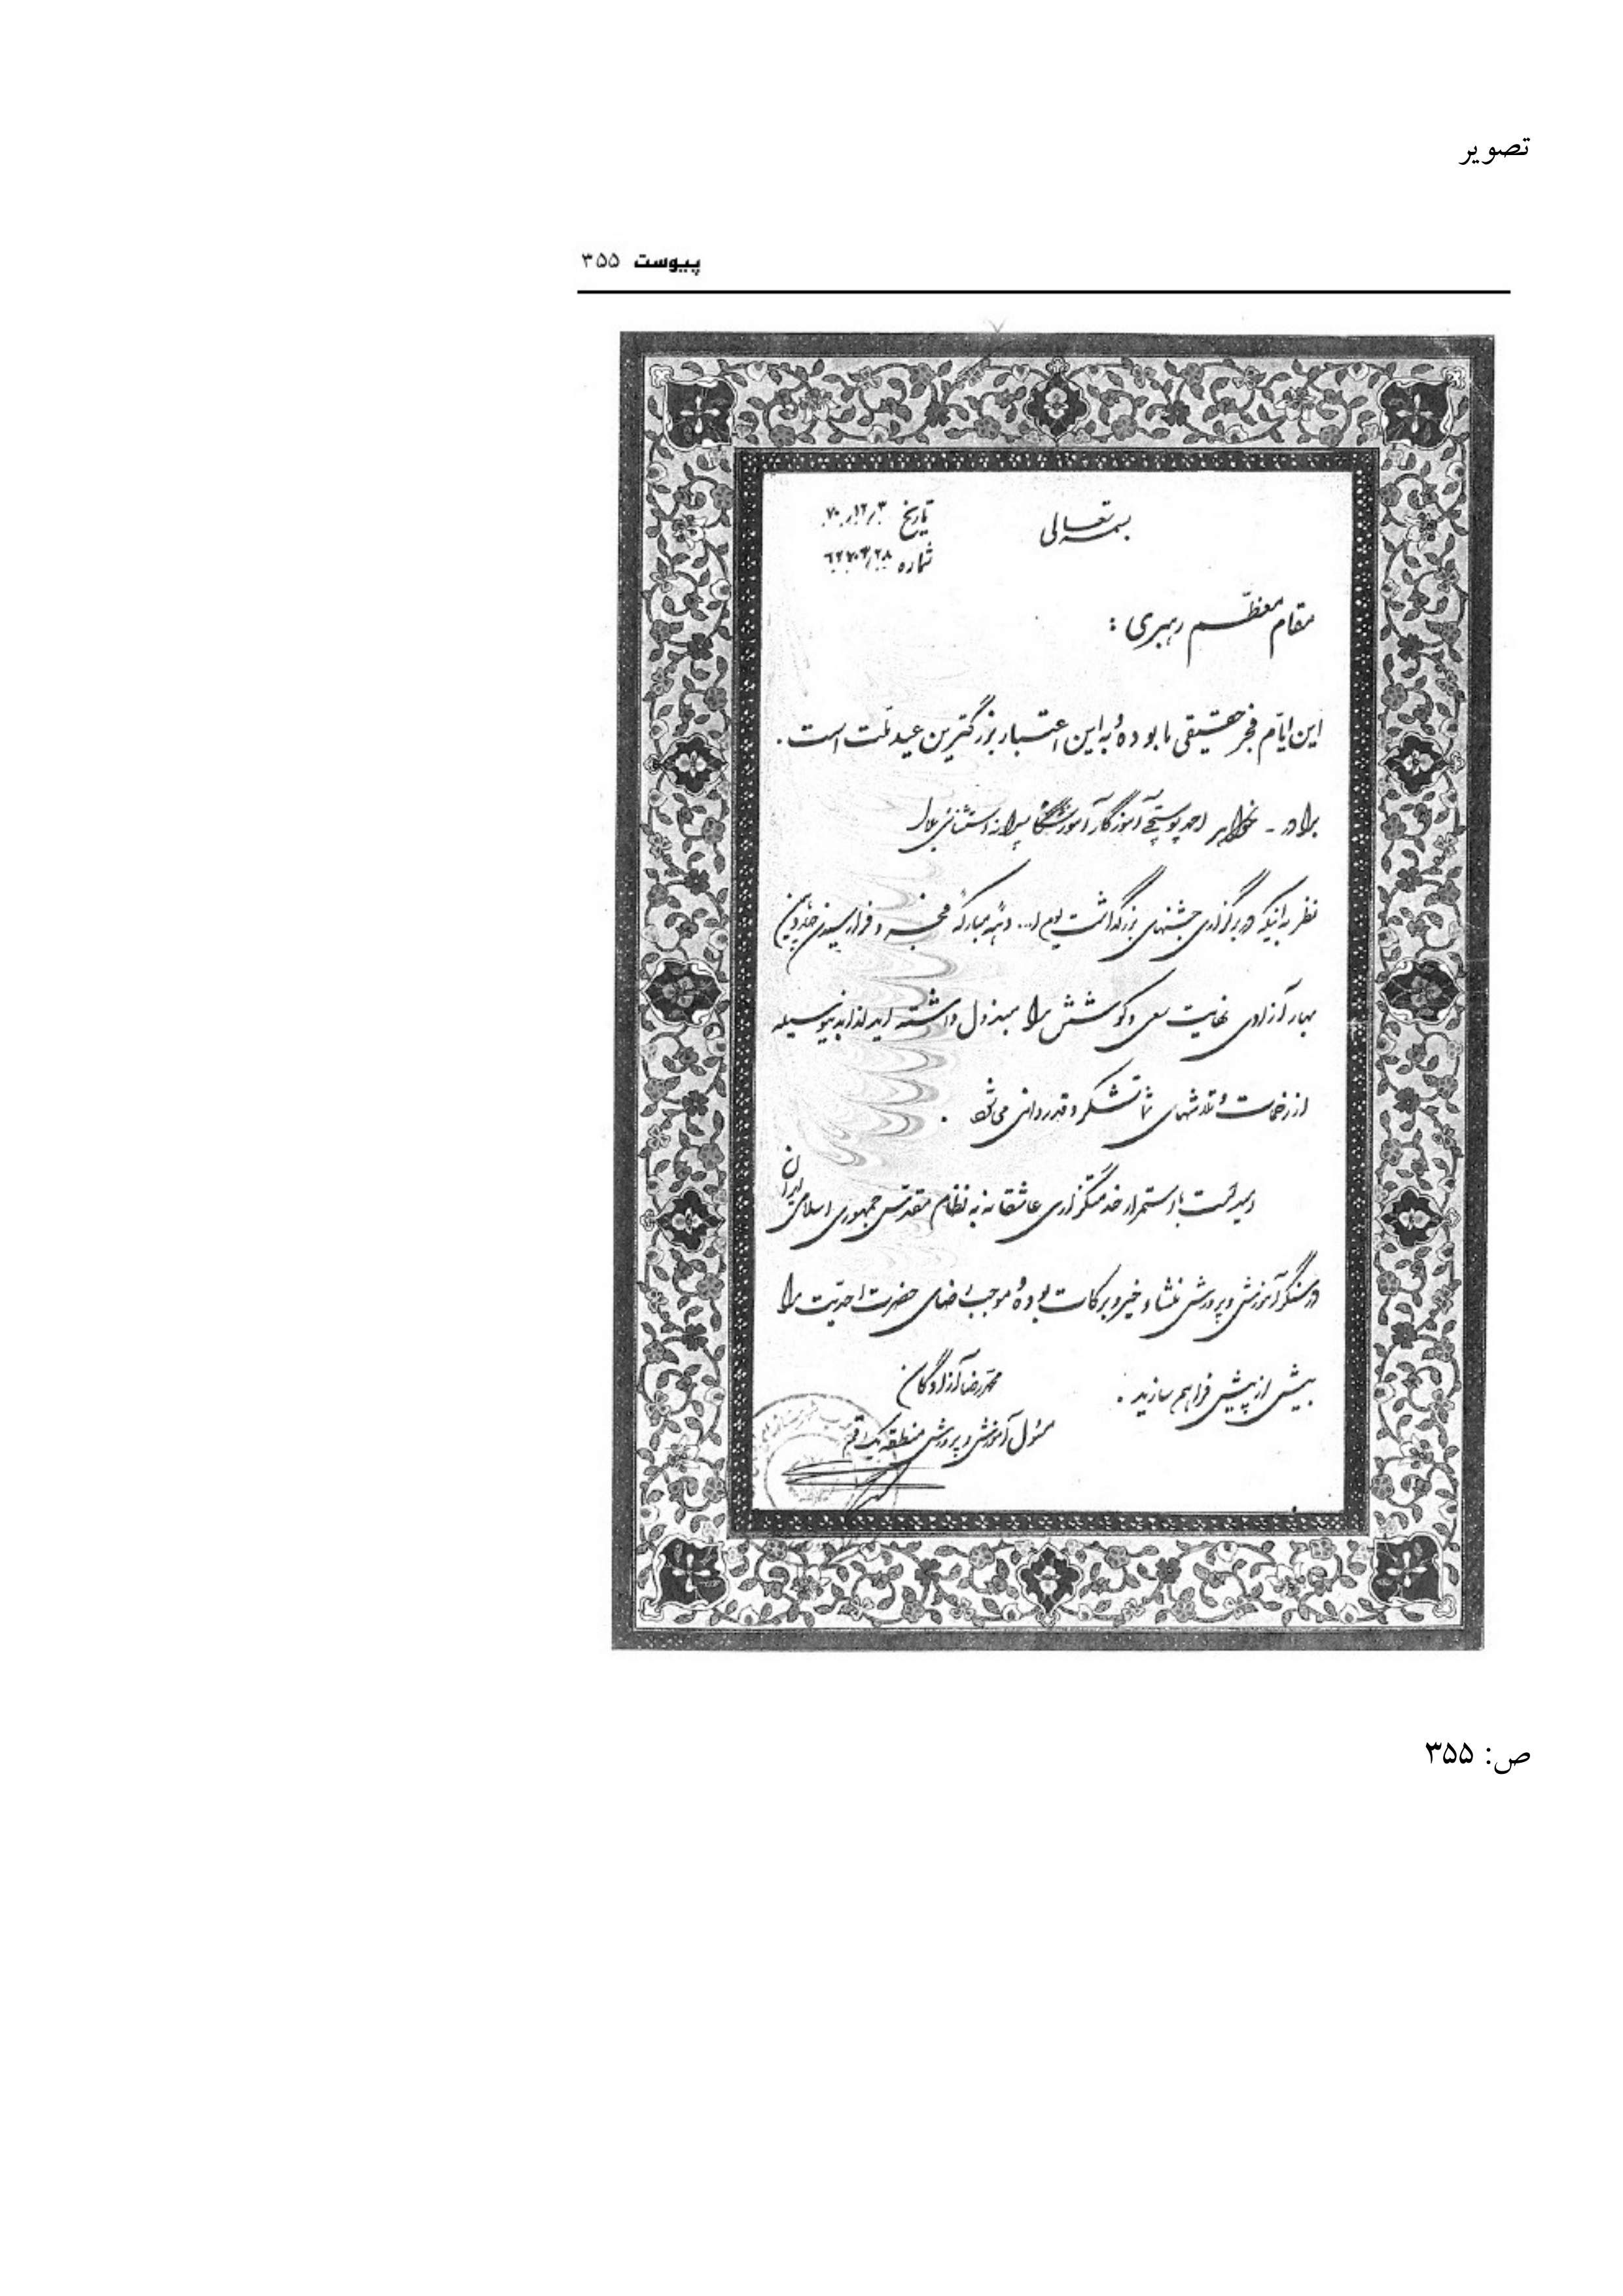 تصویر
پیوست ۳۵۵
بسمه تعالی
تاریخ ۷۰/۱۲/۳
شماره
مقام معظّم رهبری :
این ایّام فجر حقیقی ما بوده و به این اعتبار بزرگترین عید ملّت است .
برادر - خواهر احمد پوستچی آموزگار آموزشگاه پسرانه استثنائی بلال
نظر به اینکه در برگزاری جشنهای بزرگداشت یوم ا... دهه مبارکه فجر و فرارسیدن
بهار آزادی نهایت سعی و کوشش را مبذول داشته اید لذا بدینوسیله
از زحمات و تلاشهای شما تشکر و قدردانی می شود .
امید است با استمرار خدمتگزاری عاشقانه به نظام مقدّس جمهوری اسلامی ایران
در سنگر آموزش و پرورش منشاء خیر و برکات بوده و موجب رضای حضرت احدیّت را
بیش از پیش فراهم سازید .
محمّدرضا آزادگان
مسئول آموزش و پرورش منطقه یک قم
ص: ۳۵۵